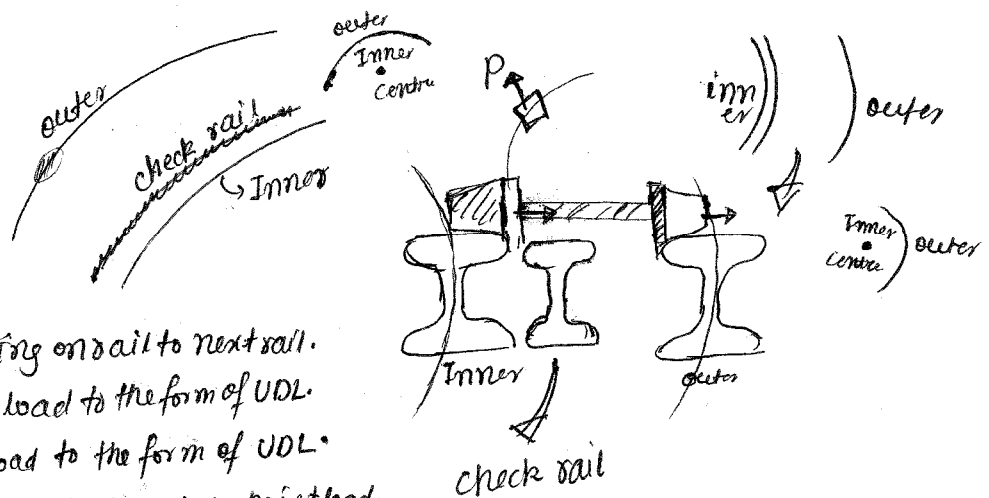 outer
check rail
Inner
outer
Inner
Centre
P
inn
er
outer
Inner
Centre
outer
Inner
outer
check rail
ing on rail to next rail.
load to the form of UDL.
oad to the form of UDL.